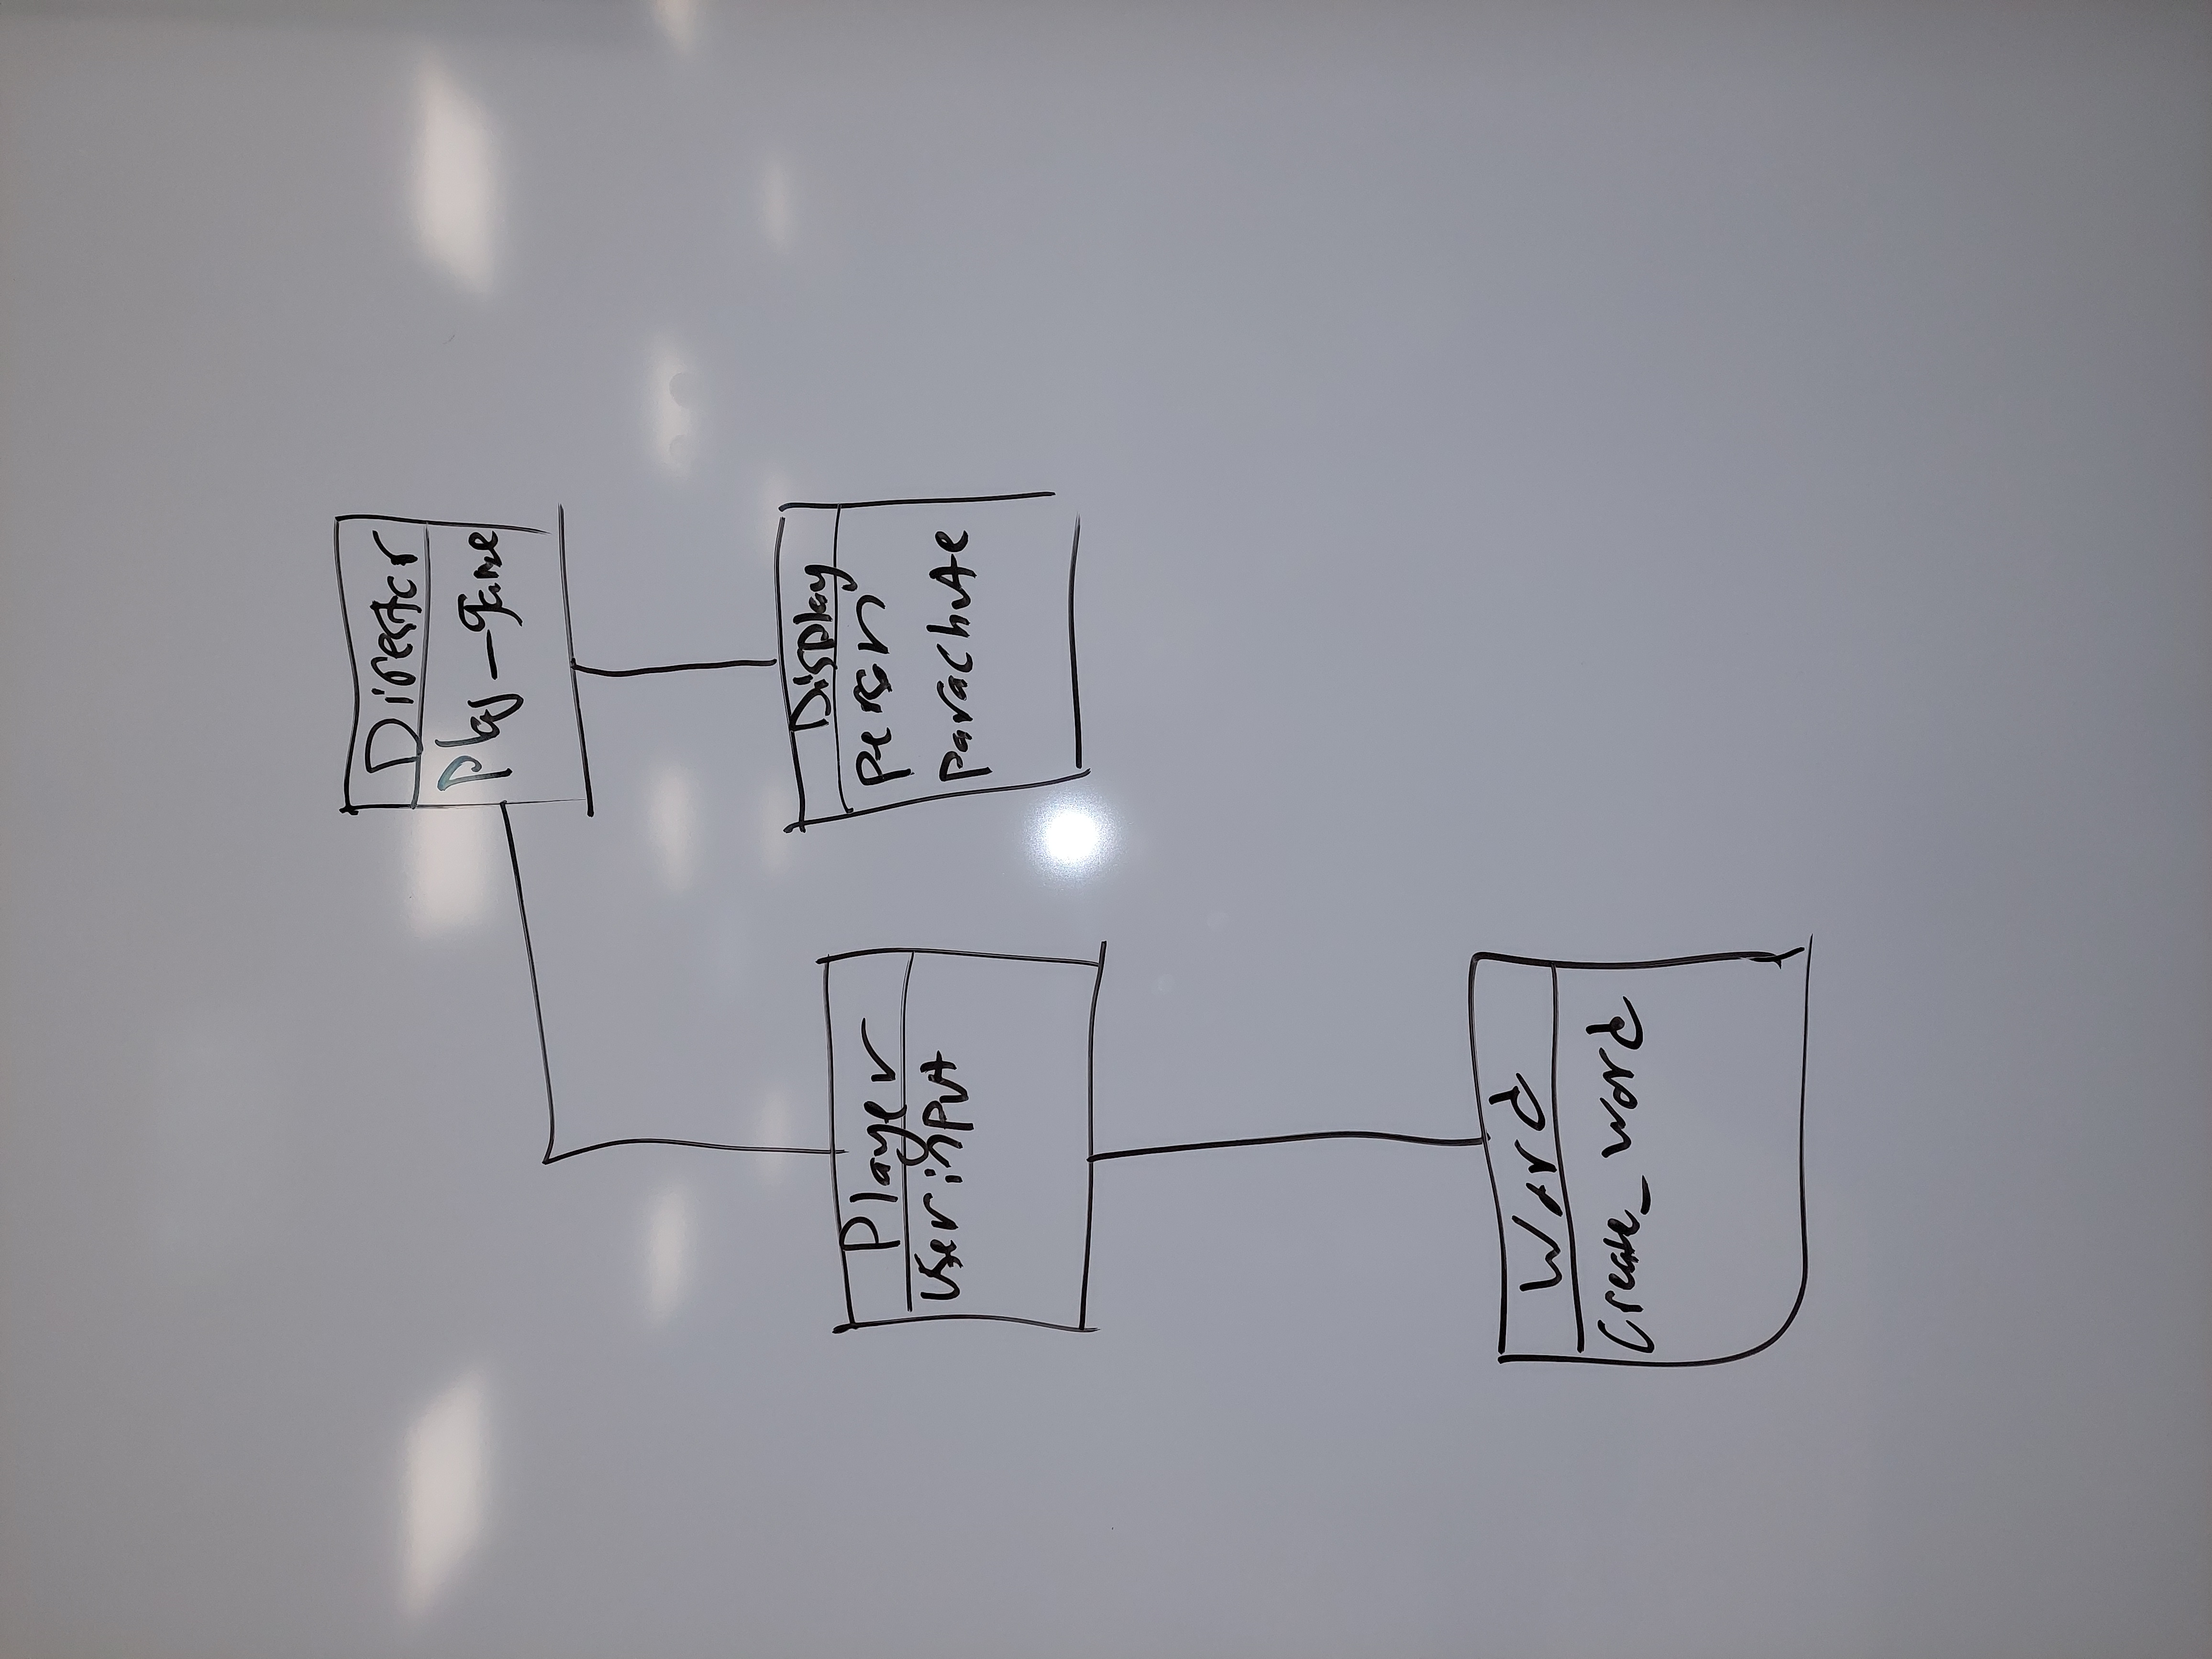 Director
Play_game
Player
User input
Display
person
parachute
Word
Create_word